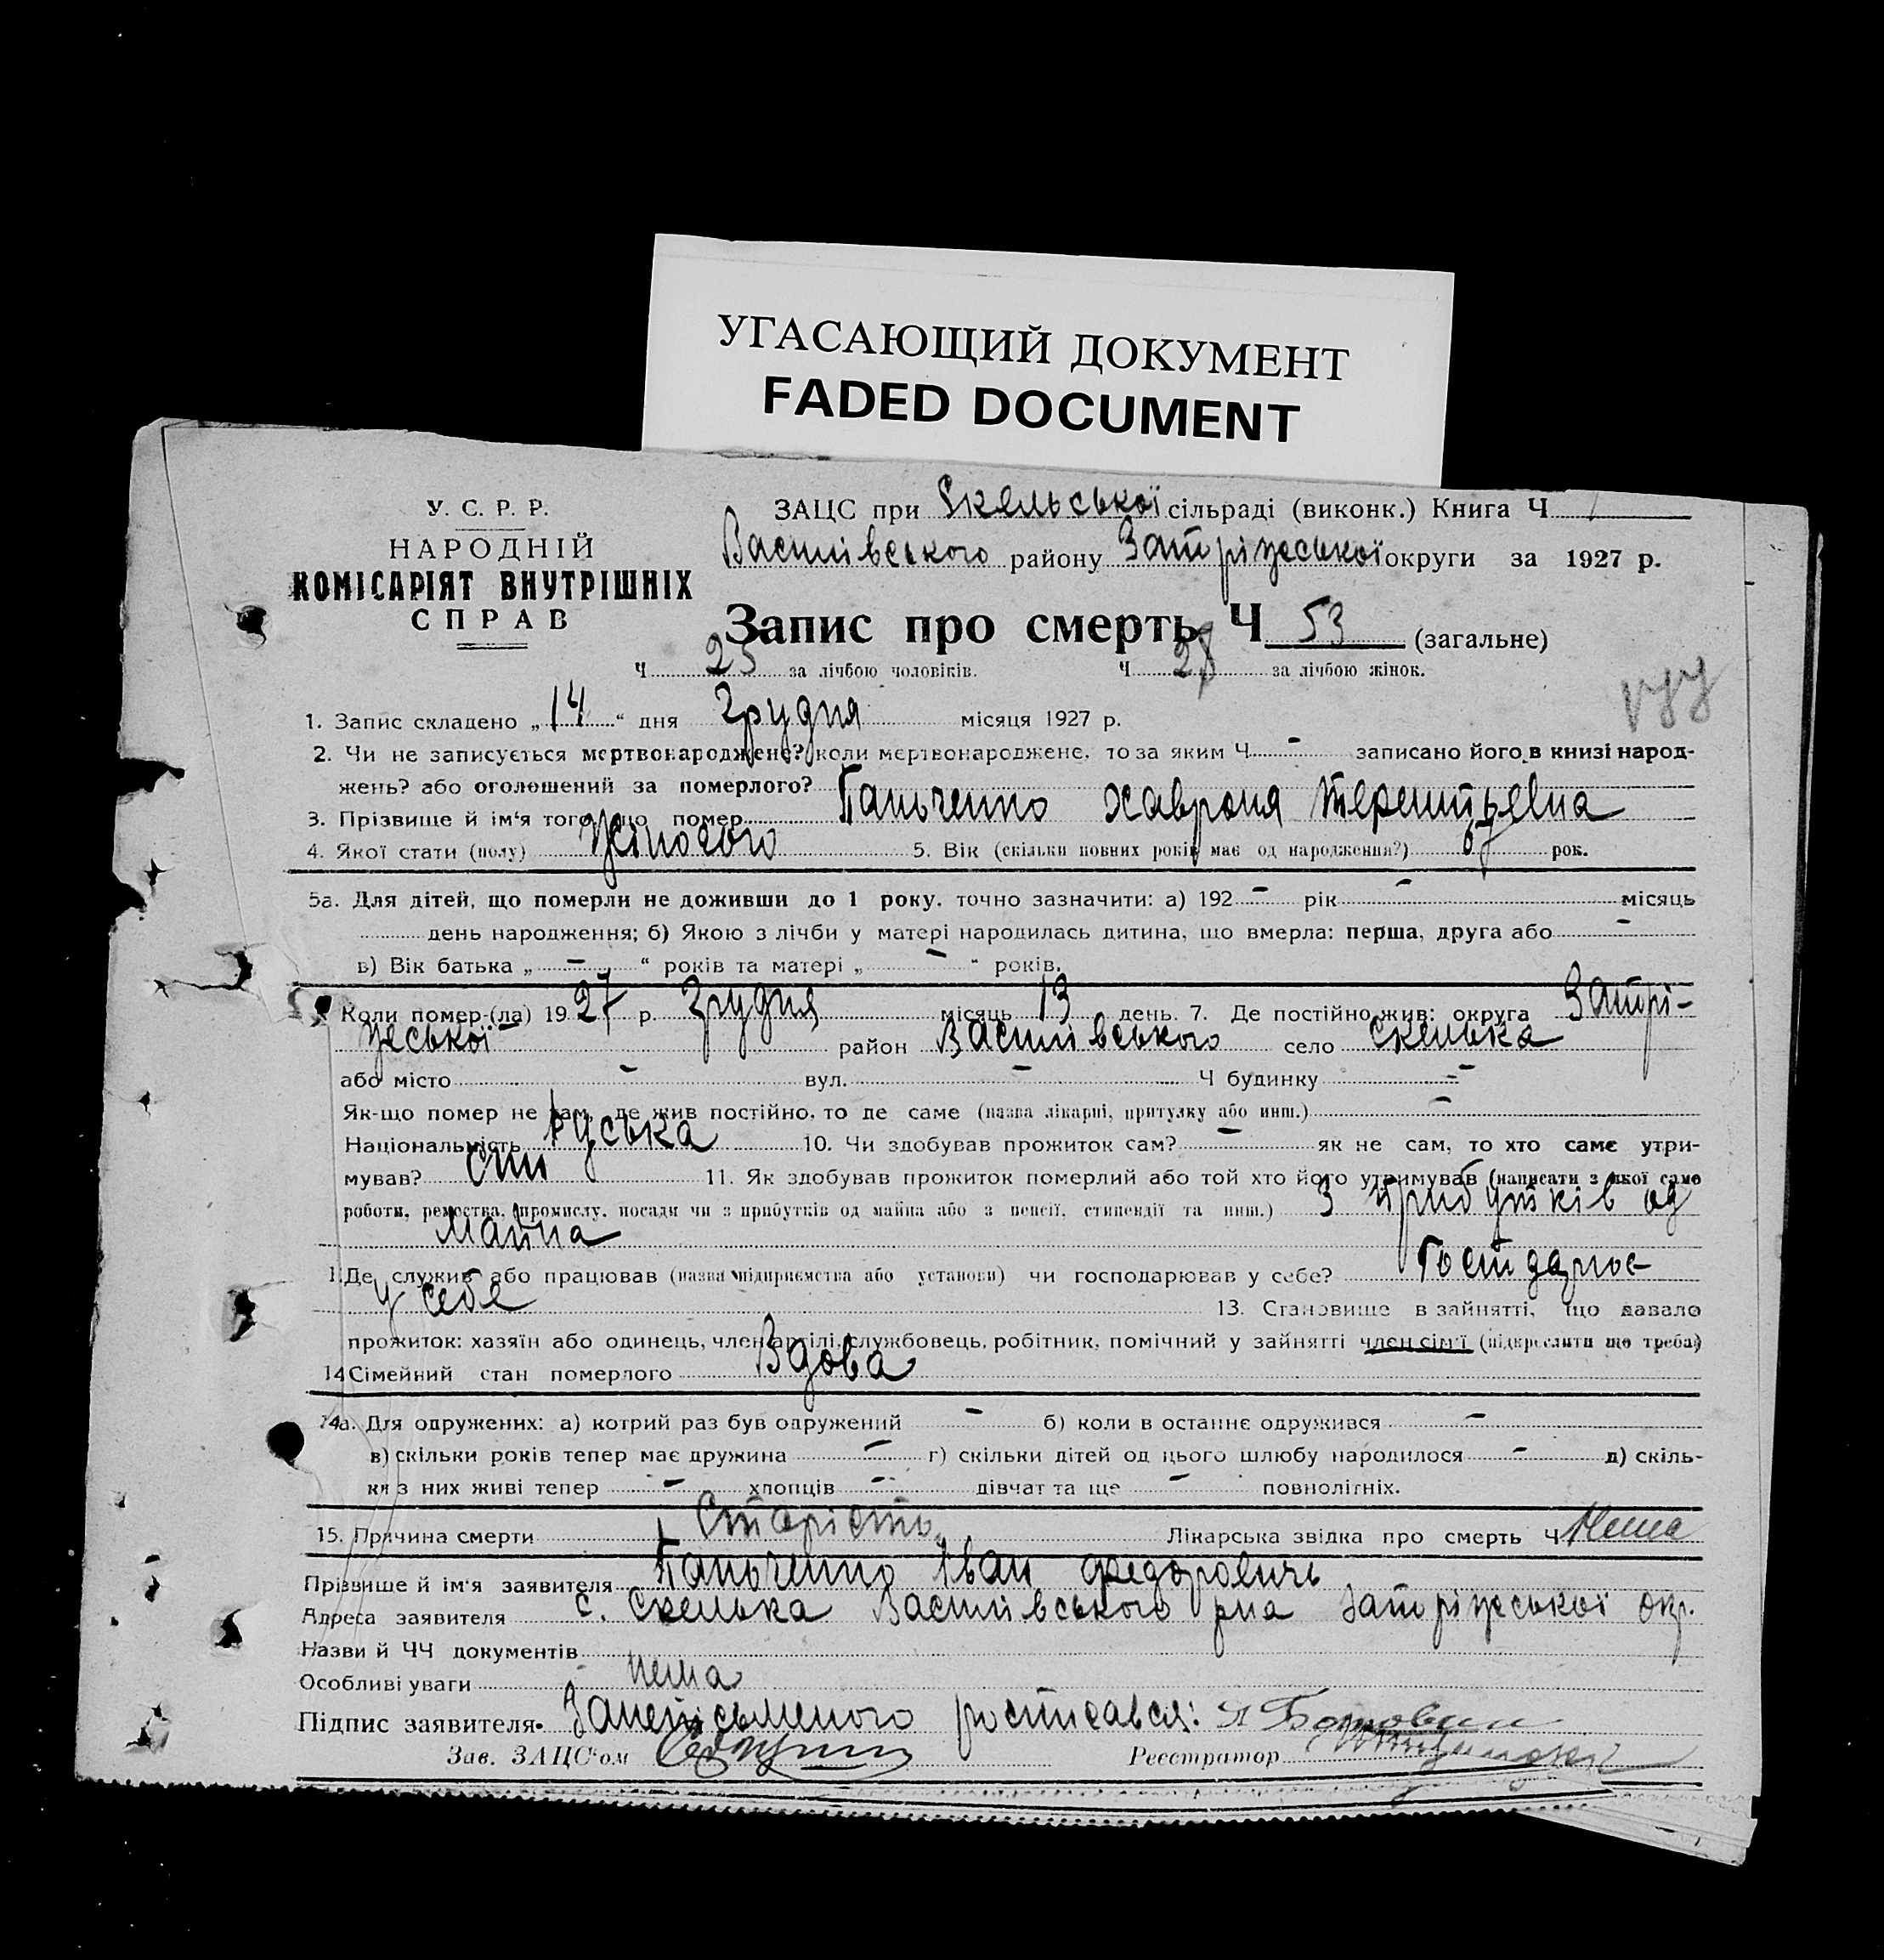 УГАСАЮЩИЙ ДОКУМЕНТ
FADED DOCUMENT
У. С. Р. Р.
НАРОДНІЙ
КОМІСАРІЯТ ВНУТРІШНІХ
СПРАВ
ЗАЦС при Скельської сільраді (виконк.) Книга Ч
Василівського району Запоріжської округи за 1927 р.
Запис про смерть Ч 53 (загальне)
Ч 25 за лічбою чоловіків. Ч 28 за лічбою жінок.
1. Запис складено „14“ дня Грудня місяця 1927 р.
2. Чи не записується мертвонароджене? коли мертвонароджене, то за яким Ч - записано його в книзі народ-
жень? або оголошений за померлого?
3. Прізвище й ім'я того, що помер Панченко Хавроня Терентьевна
4. Якої стати (полу) Жіночого 5. Вік (скільки повних років має од народження?) 67 рок.
5а. Для дітей, що померли не доживши до 1 року, точно зазначити: а) 192 - рік - місяць
день народження; б) Якою з лічби у матері народилась дитина, що вмерла: перша, друга або -
в) Вік батька „ - “ років та матері „ - “ років.
Коли помер-(ла) 1927 р. Грудня місяць 13 день. 7. Де постійно жив: округа Запорі-
жської район Василівського село Скелька
або місто - вул. - Ч будинку -
Як-що помер не там, де жив постійно, то де саме (назва лікарні, притулку або инш.) -
Національність Руська 10. Чи здобував прожиток сам? - як не сам, то хто саме утри-
мував? Син 11. Як здобував прожиток померлий або той хто його утримував (написати з якої само
роботи, ремества, промислу, посади чи з прибутків од майна або з пенсії, стипендії та инш.) З прибутків од
майна
Де служив або працював (назва підприємства або установи) чи господарював у себе?
у себе 13. Становище в зайнятті, що давало
прожиток: хазяїн або одинець, член артілі, службовець, робітник, помічний у зайнятті член сім'ї (підкреслити що треба)
14 Сімейний стан померлого Вдова
14а. Для одружених: а) котрий раз був одружений - б) коли в останнє одружився -
в) скільки років тепер має дружина - г) скільки дітей од цього шлюбу народилося - д) скіль-
ки з них живі тепер - хлопців - дівчат та ще - повнолітніх.
15. Причина смерти Старість Лікарська звідка про смерть Ч Нема
Прізвище й ім'я заявителя Панченко Іван Федорович
Адреса заявителя с. Скелька Василівського р-на Запоріжської окр.
Назви й ЧЧ документів
Особливі уваги нема
Підпис заявителя. росписався:
Зав. ЗАЦС'ом Реєстратор